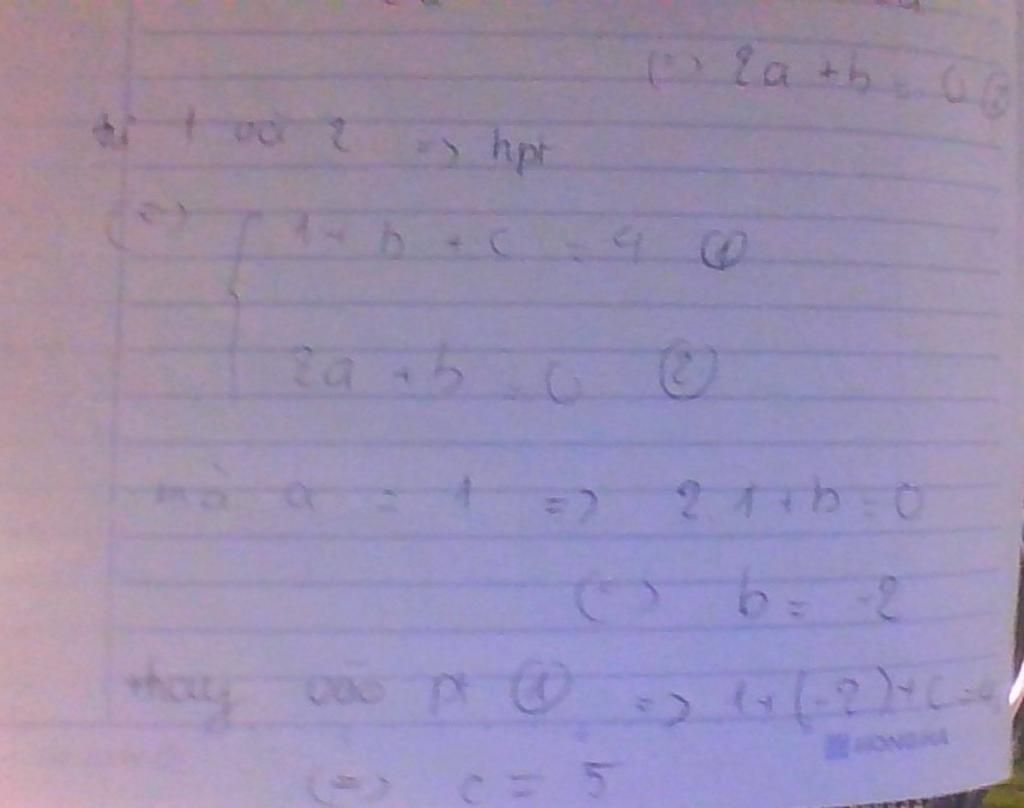 (=) 2a + b = 0 ②
từ 1 và 2 => hpt
(=) { 1 + b + c = 4 ①
2a + b = 0 ②
mà a = 1 => 2.1 + b = 0
(=) b = -2
thay vào pt ① => 1 + (-2) + c = 4
HONG HA
(=) c = 5